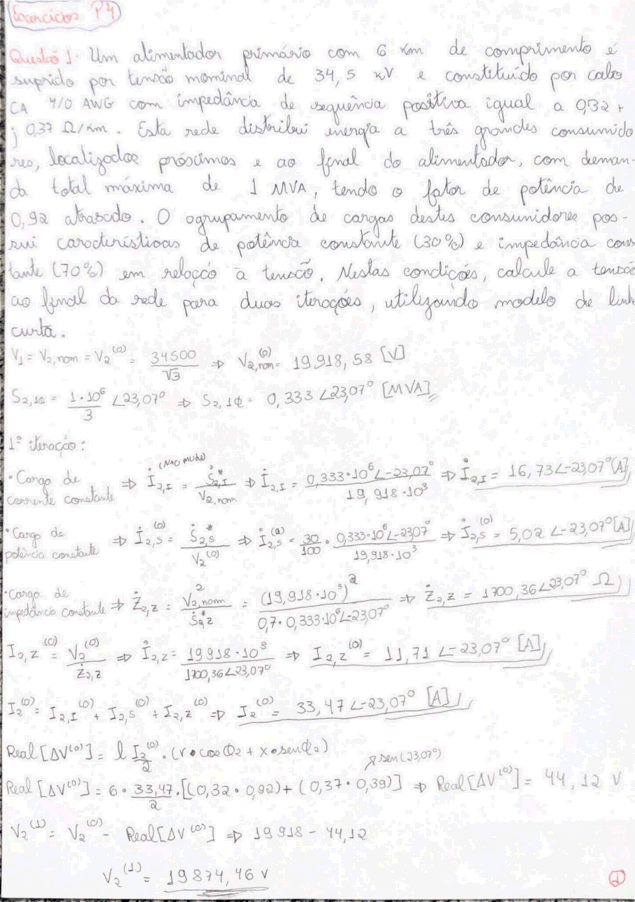 Exercícios P4
Questão 1- Um alimentador primário com 6 km de comprimento é
suprido por tensão nominal de 34,5 kV e constituído por cabo
CA 4/0 AWG com impedância de sequência positiva igual a 0,32 +
j 0,37 Ω/km. Esta rede distribui energia a três grandes consumido
res, localizados próximos e ao final do alimentador, com deman-
da total máxima de 1 MVA, tendo o fator de potência de
0,92 atrasado. O agrupamento de cargas destes consumidores pos-
sui características de potência constante (30%) e impedância cons
tante (70%) em relação à tensão. Nestas condições, calcule a tensão
ao final da rede para duas iterações, utilizando modelo de linha
curta.
V1 = V2,nom = V2^(0) = 34500/√3 ⇒ V2,nom^(0) = 19.918,58 [V]
S2,1Φ = 1·10^6/3 ∠23,07° ⇒ S2,1Φ = 0,333∠23,07° [MVA]
1ª iteração:
(NÃO MUDA)
• Carga de corrente constante ⇒ İ2,I = Ṡ2,I*/V2,nom ⇒ İ2,I = 0,333·10^6∠-23,07°/19,918·10^3 ⇒ İ2,I = 16,73∠-23,07° [A]
• Carga de potência constante ⇒ İ2,S^(0) = Ṡ2,S*/V2^(0) ⇒ İ2,S^(0) = 30/100 · 0,333·10^6∠-23,07/19,918·10^3 ⇒ İ2,S^(0) = 5,02∠-23,07° [A]
• Carga de impedância constante ⇒ Ż2,Z = V2,nom²/Ṡ2,Z* = (19,918·10^3)²/0,7·0,333·10^6∠-23,07° ⇒ Ż2,Z = 1700,36∠23,07° Ω
I2,Z^(0) = V2^(0)/Ż2,Z ⇒ İ2,Z = 19918·10^3/1700,36∠23,07° ⇒ I2,Z^(0) = 11,71∠-23,07° [A]
I2^(0) = I2,I^(0) + I2,S^(0) + I2,Z^(0) ⇒ I2^(0) = 33,47∠-23,07° [A]
Real[ΔV^(0)] = l I2^(0)/2 · (r•cosΦ2 + x•senΦ2)
sen(23,07°)
Real[ΔV^(0)] = 6·33,47/2·[(0,32·0,92)+(0,37·0,39)] ⇒ Real[ΔV^(0)] = 44,12 V
V2^(1) = V2^(0) - Real[ΔV^(0)] ⇒ 19918 - 44,12
V2^(1) = 19874,46 V
1